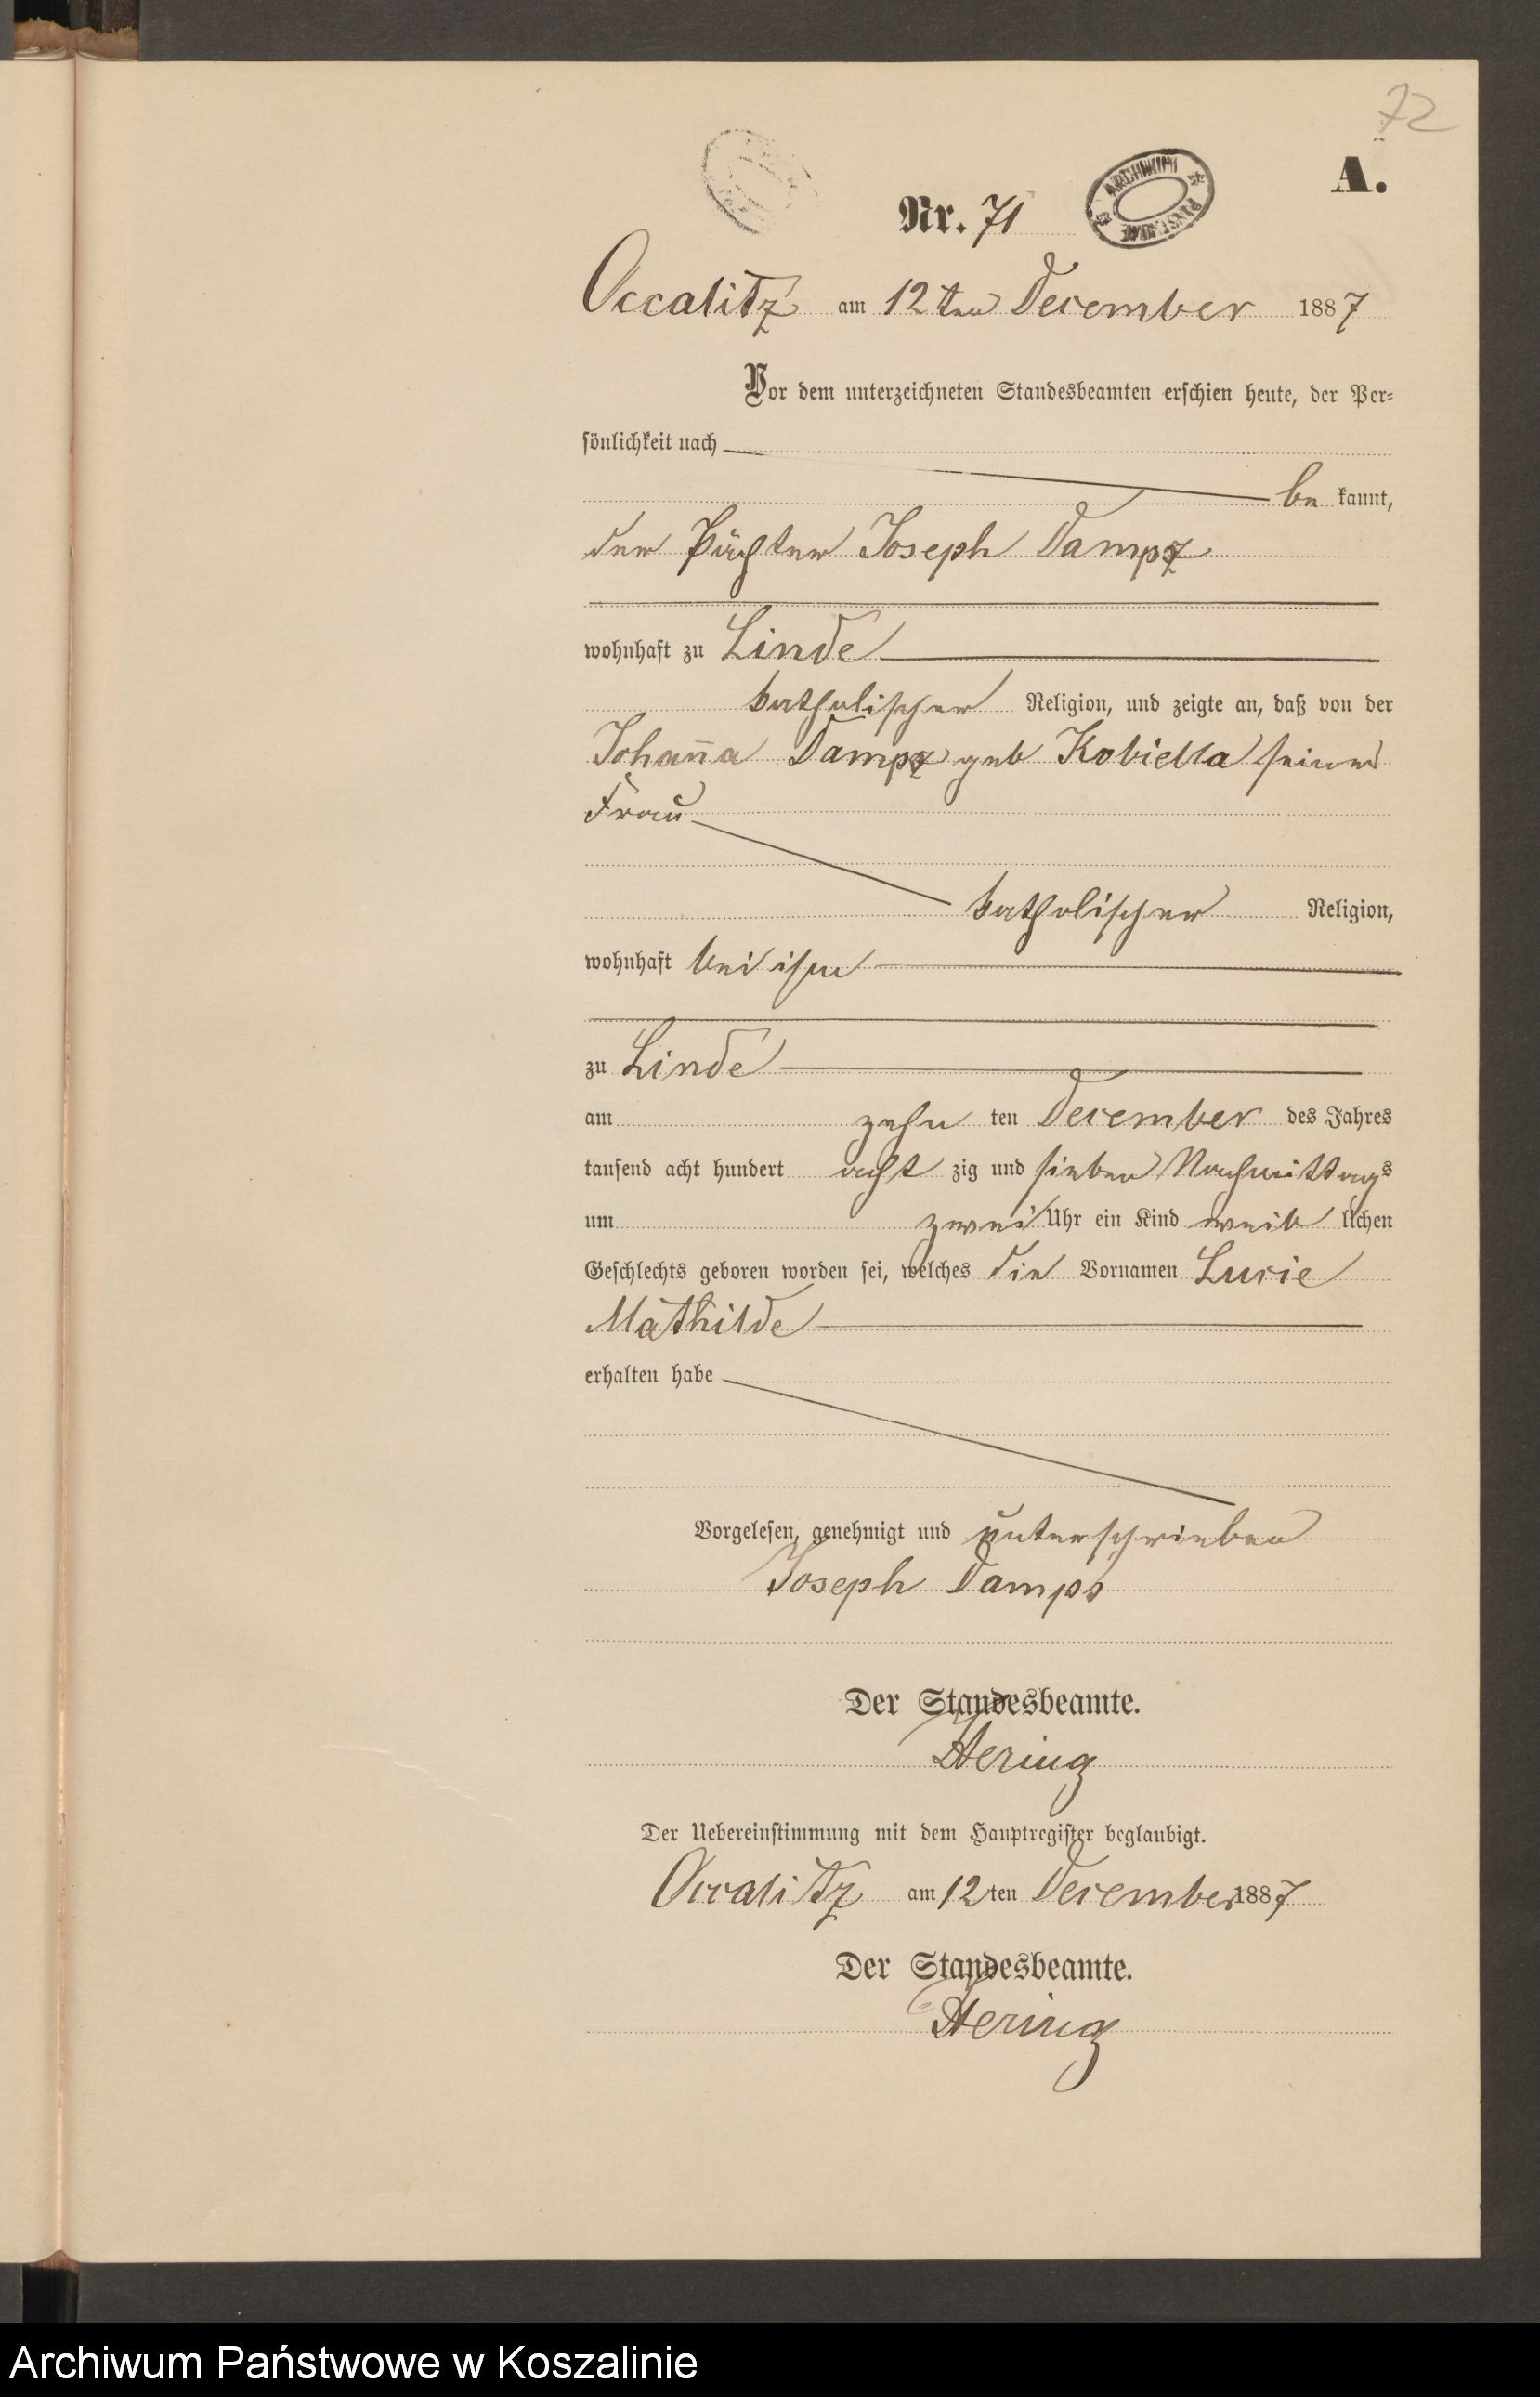 72
A.
ARCHIWUM PAŃSTWOWE
Nr. 71
Occalitz am 12ten December 1887
Vor dem unterzeichneten Standesbeamten erschien heute, der Per-
sönlichkeit nach
be kannt,
der Pächter Joseph Damps
wohnhaft zu Linde
katholischer Religion, und zeigte an, daß von der
Johanna Damps geb Kobiella seiner
Frau
katholischer Religion,
wohnhaft bei ihm
zu Linde
am zehn ten December des Jahres
tausend acht hundert acht zig und sieben Nachmittags
um zwei Uhr ein Kind weib lichen
Geschlechts geboren worden sei, welches die Vornamen Lucie
Mathilde
erhalten habe
Vorgelesen, genehmigt und unterschrieben
Joseph Damps
Der Standesbeamte.
Hering
Der Uebereinstimmung mit dem Hauptregister beglaubigt.
Occalitz am 12 ten December 1887
Der Standesbeamte.
Hering
Archiwum Państwowe w Koszalinie